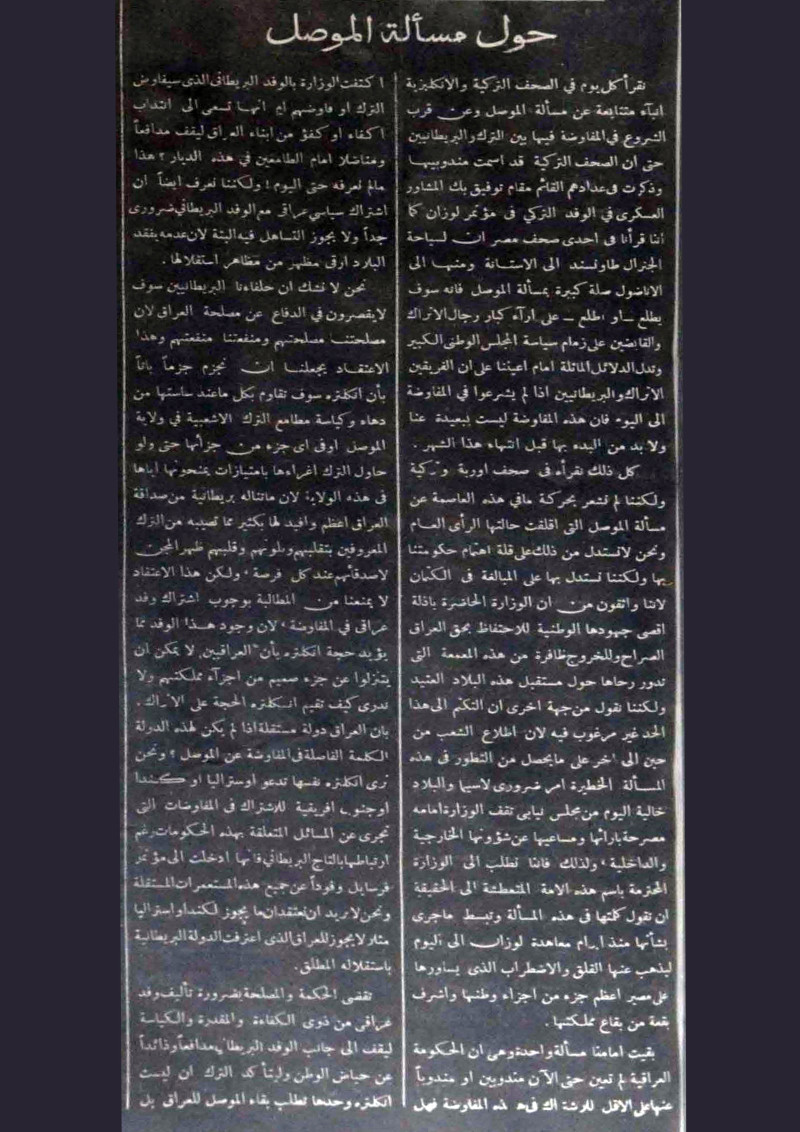 حول مسألة الموصل
نقرأ كل يوم في الصحف التركية والانكليزية
انبآء متتابعة عن مسألة الموصل وعن قرب
الشروع في المفاوضة فيها بين الترك والبريطانيين
حتى ان الصحف التركية قد اسمت مندوبيها
وذكرت في عدادهم القائم مقام توفيق بك المشاور
العسكرى في الوفد التركي في مؤتمر لوزان كما
اننا قرأنا في احدى صحف مصر ان لسياحة
الجنرال طاونسند الى الاستانة ومنها الى
الاناضول صلة كبيرة بمسألة الموصل فانه سوف
يطلع ــ او اطلع ــ على ارآء كبار رجال الاتراك
والقابضين على زمام سياسة المجلس الوطنى الكبير
وتدل الدلائل الماثلة امام اعيننا على ان الفريقين
الاتراك والبريطانيين اذا لم يشرعوا في المفاوضة
الى اليوم فان هذه المفاوضة ليست ببعيدة عنا
ولا بد من البدء بها قبل انتهاء هذا الشهر .
كل ذلك نقرأه في صحف اوربة وتركية
ولكننا لم نشعر بحركة مافي هذه العاصمة عن
مسألة الموصل التى اقلقت حالتها الرأى العام
ونحن لانستدل من ذلك على قلة اهتمام حكومتنا
بها ولكننا نستدل بها على المبالغة في الكتمان
لاننا واثقون من ان الوزارة الحاضرة باذلة
اقصى جهودها الوطنية للاحتفاظ بحق العراق
الصراح وللخروج ظافرة من هذه المعمعة التى
تدور رحاها حول مستقبل هذه البلاد العتيد
ولكننا نقول من جهة اخرى ان التكتم الى هذا
الحد غير مرغوب فيه لان اطلاع الشعب من
حين الى اخر على مايحصل من التطور في هذه
المسألة الخطيرة امر ضرورى لاسيما والبلاد
خالية اليوم من مجلس نيابى تقف الوزارة امامه
مصرحة بارائها ومساعيها عن شؤونها الخارجية
والداخلية ، ولذلك فاننا نطلب الى الوزارة
المحترمة باسم هذه الامة المتعطشة الى الحقيقة
ان تقول كلمتها في هذه المسألة وتبسط ماجرى
بشأنها منذ ابرام معاهدة لوزان الى اليوم
ليذهب عنها القلق والاضطراب الذى يساورها
على مصير اعظم جزء من اجزاء وطنها واشرف
بقعة من بقاع مملكتها .
بقيت امامنا مسألة واحدة وهى ان الحكومة
العراقية لم تعين حتى الآن مندوبين او مندوباً
عنها على الاقل للاشتراك في هذه المفاوضة فهل
اكتفت الوزارة بالوفد البريطانى الذى سيفاوض
الترك او فاوضهم ام انها تسعى الى انتداب
اكفاء او كفؤ من ابناء العراق ليقف مدافعاً
ومناضلا امام الطامعين في هذه الديار ؟ هذا
مالم نعرفه حتى اليوم ! ولكننا نعرف ايضاً ان
اشتراك سياسي عراقى مع الوفد البريطاني ضرورى
جداً ولا يجوز التساهل فيه البتة لان عدمه يفقد
البلاد ارقى مظهر من مظاهر استقلالها .
نحن لا نشك ان حلفاءنا البريطانيين سوف
لايقصرون في الدفاع عن مصلحة العراق لان
مصلحتنا مصلحتهم ومنفعتنا منفعتهم وهذا
الاعتقاد يجعلنا ان نجزم جزماً باتاً
بأن انكلتره سوف تقاوم بكل ماعند ساستها من
دهاء وكياسة مطامع الترك الاشعبية في ولاية
الموصل اوفى اى جزء من جزأها حتى ولو
حاول الترك اغراءها بامتيازات يمنحونها اياها
في هذه الولاية لان ماتناله بريطانية من صداقة
العراق اعظم وافيد لها بكثير مما تصيبه من الترك
المعروفين بتقلبهم وتلونهم وقلبهم ظهر المجن
لاصدقائهم عند كل فرصة ، ولكن هذا الاعتقاد
لا يمنعنا من المطالبة بوجوب اشتراك وفد
عراقى في المفاوضة ، لان وجود هذا الوفد مما
يؤيد حجة انكلتره بأن العراقيين لا يمكن ان
يتنزلوا عن جزء صميم من اجزآء مملكتهم ولا
ندرى كيف تقيم انكلتره الحجة على الاتراك .
بان العراق دولة مستقلة اذا لم يكن لهذه الدولة
الكلمة الفاصلة في المفاوضة عن الموصل ؟ ونحن
نرى انكلتره نفسها تدعو اوستراليا او كندا
او جنوب افريقية للاشتراك في المفاوضات التى
تجرى عن المسائل المتعلقة بهذه الحكومات رغم
ارتباطها بالتاج البريطانى فانها ادخلت الى مؤتمر
فرسايل وفوداً عن جميع هذه المستعمرات المستقلة
ونحن لا نريد ان نعتقد ان ما يجوز لكندا واستراليا
مثلا لا يجوز للعراق الذى اعترفت الدولة البريطانية
باستقلاله المطلق .
تقضى الحكمة والمصلحة بضرورة تأليف وفد
عراقى من ذوى الكفاءة والمقدرة والكياسة
ليقف الى جانب الوفد البريطانى مدافعاً وذائداً
عن حياض الوطن وليتأكد الترك ان ليست
انكلتره وحدها تطلب بقاء الموصل للعراق بل